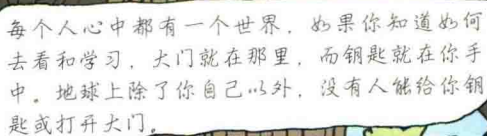 每个人心中都有一个世界，如果你知道如何
去看和学习，大门就在那里，而钥匙就在你手
中。地球上除了你自己以外，没有人能给你钥
匙或打开大门。